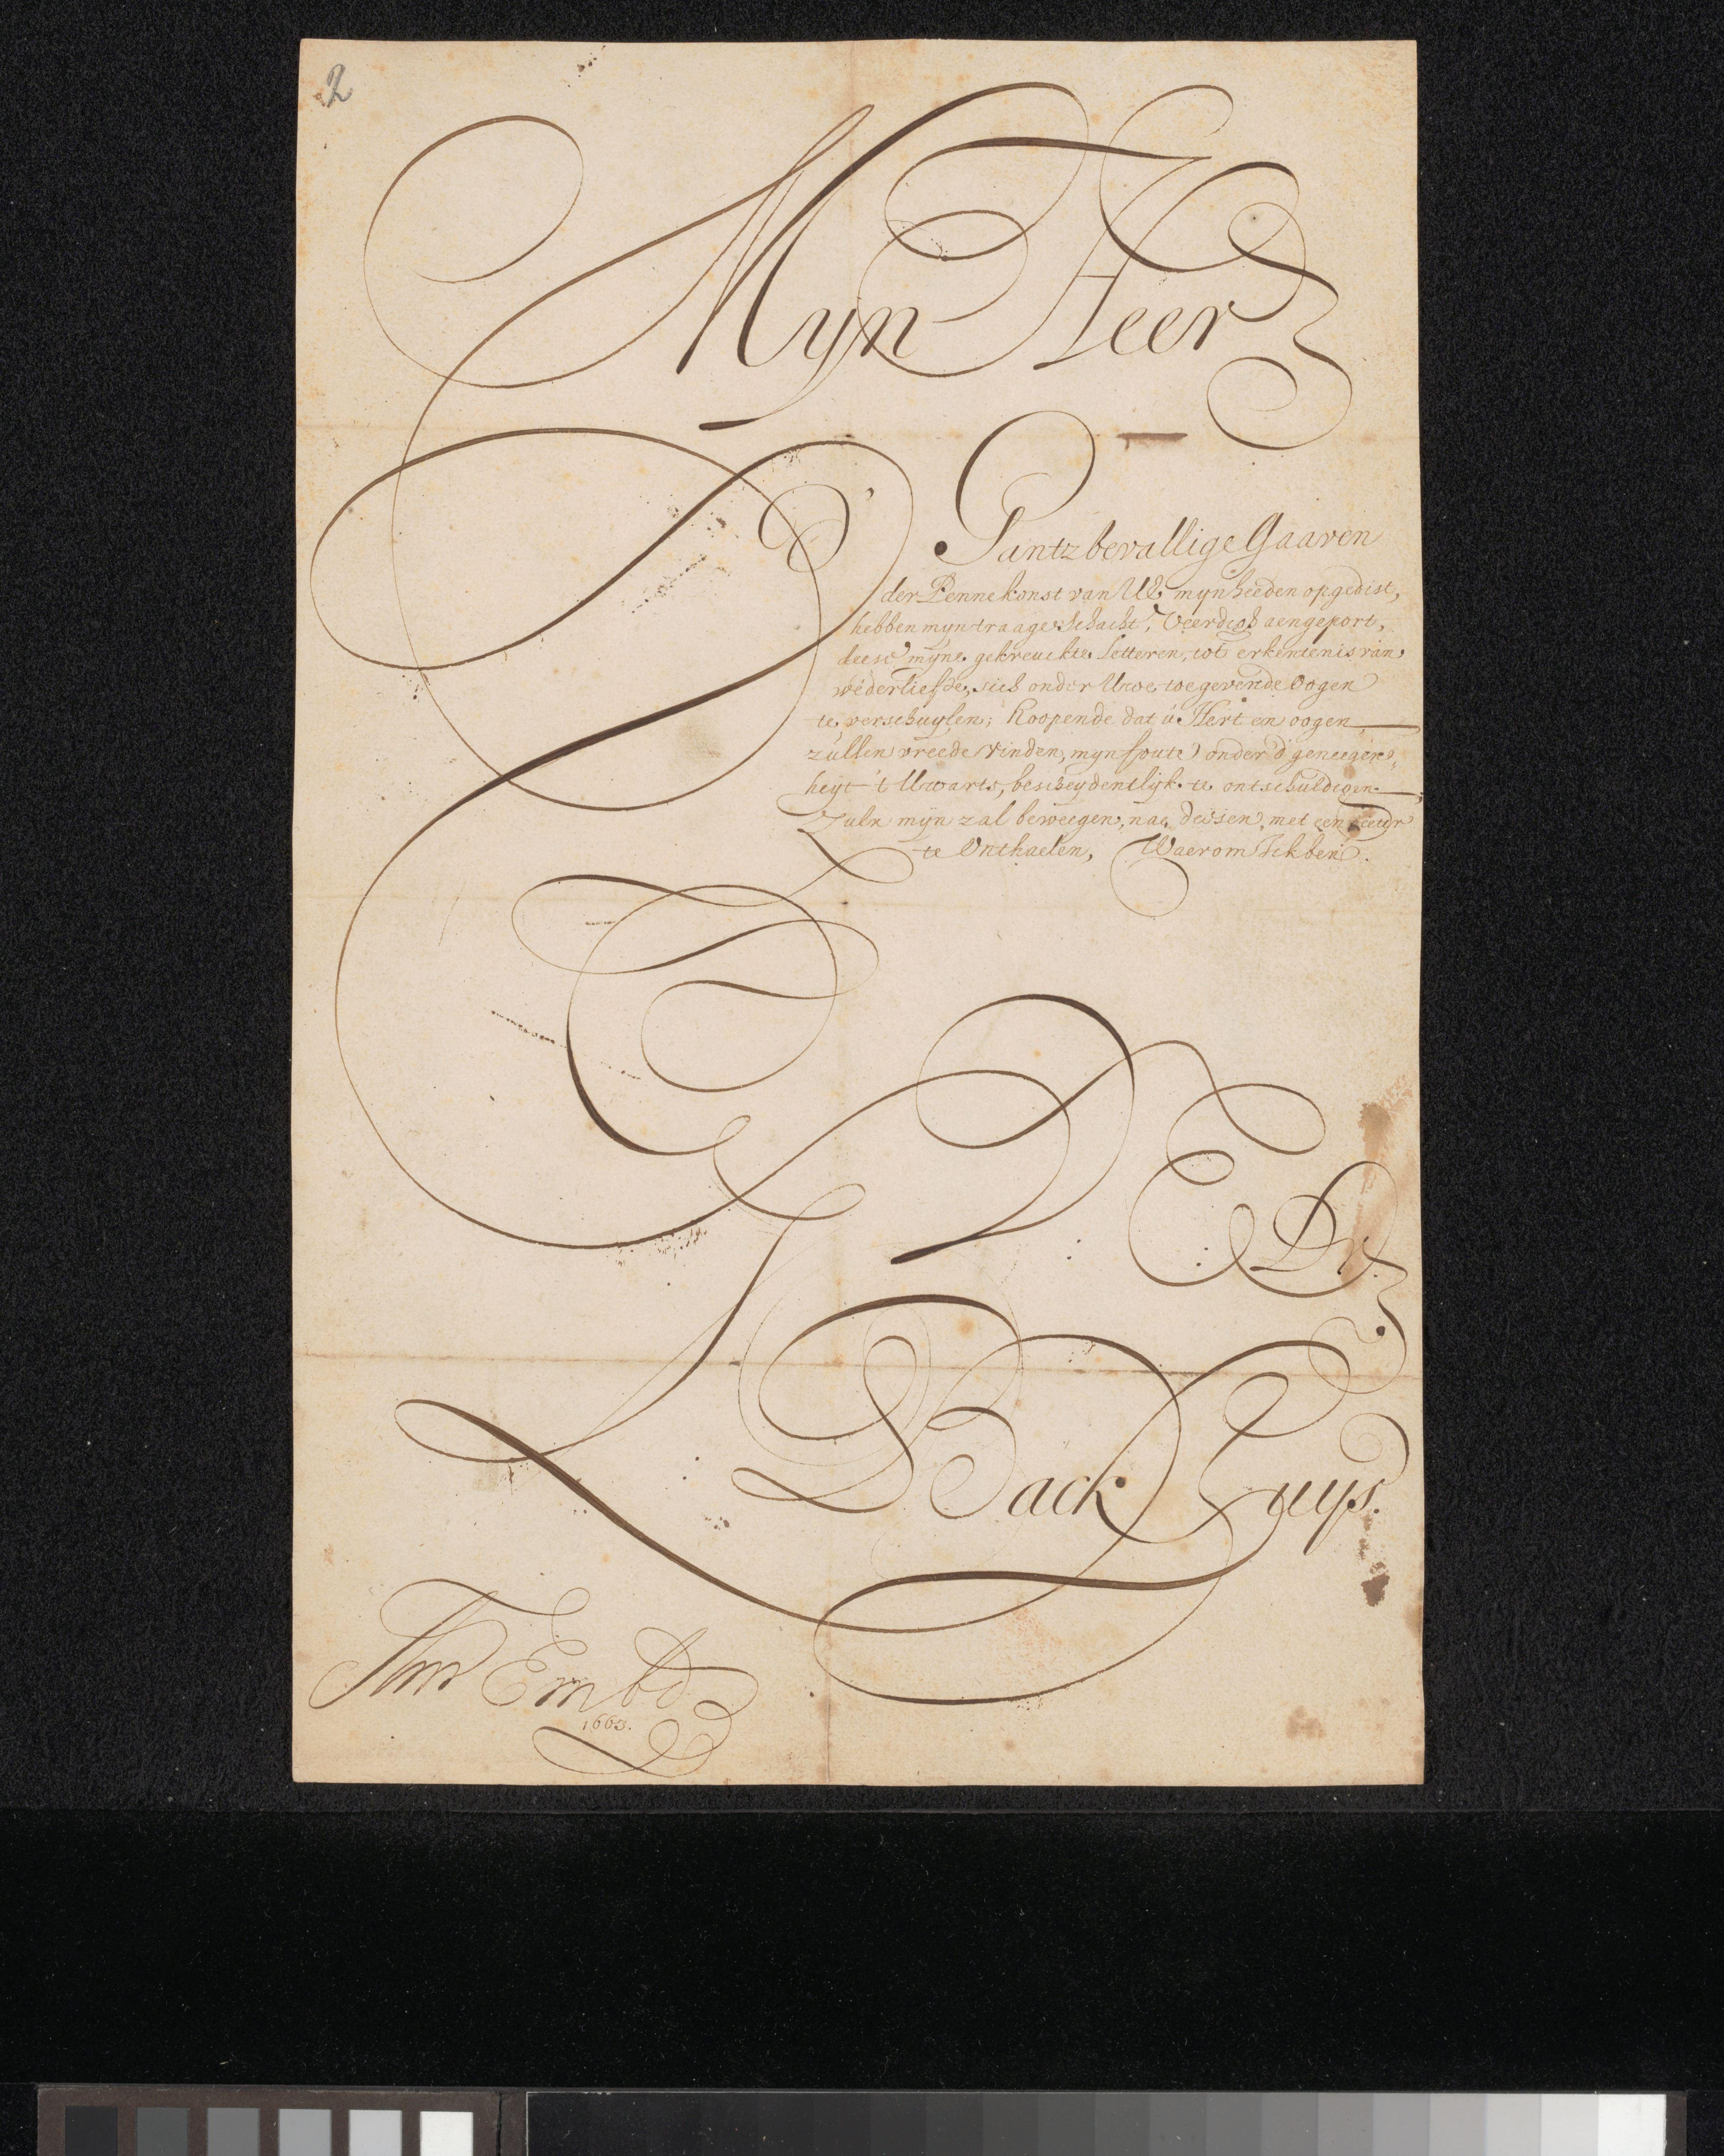 2
Myn Heer
D' Gantz bevallige Gaaven
der Pennekonst van UE, myn heeden opgedist,
hebben myn traage Schacht, Veerdigh aengeport,
deese myne gekreuckte Letteren, tot erkentenis van
wederliefde, sich onder Uwe toegevende Oogen
te verschuylen; hoopende dat u Hert en oogen
zullen vreede vinden, myn foute onder d' geneegen,
heyt 't Uwarts, bescheydentlyk te ontschuldigen
Zulx myn zal beweegen, na dessen, met een
te Onthaelen, Waerom Ick ben.
E: Dr.
Back Huys.
Embd
1663.